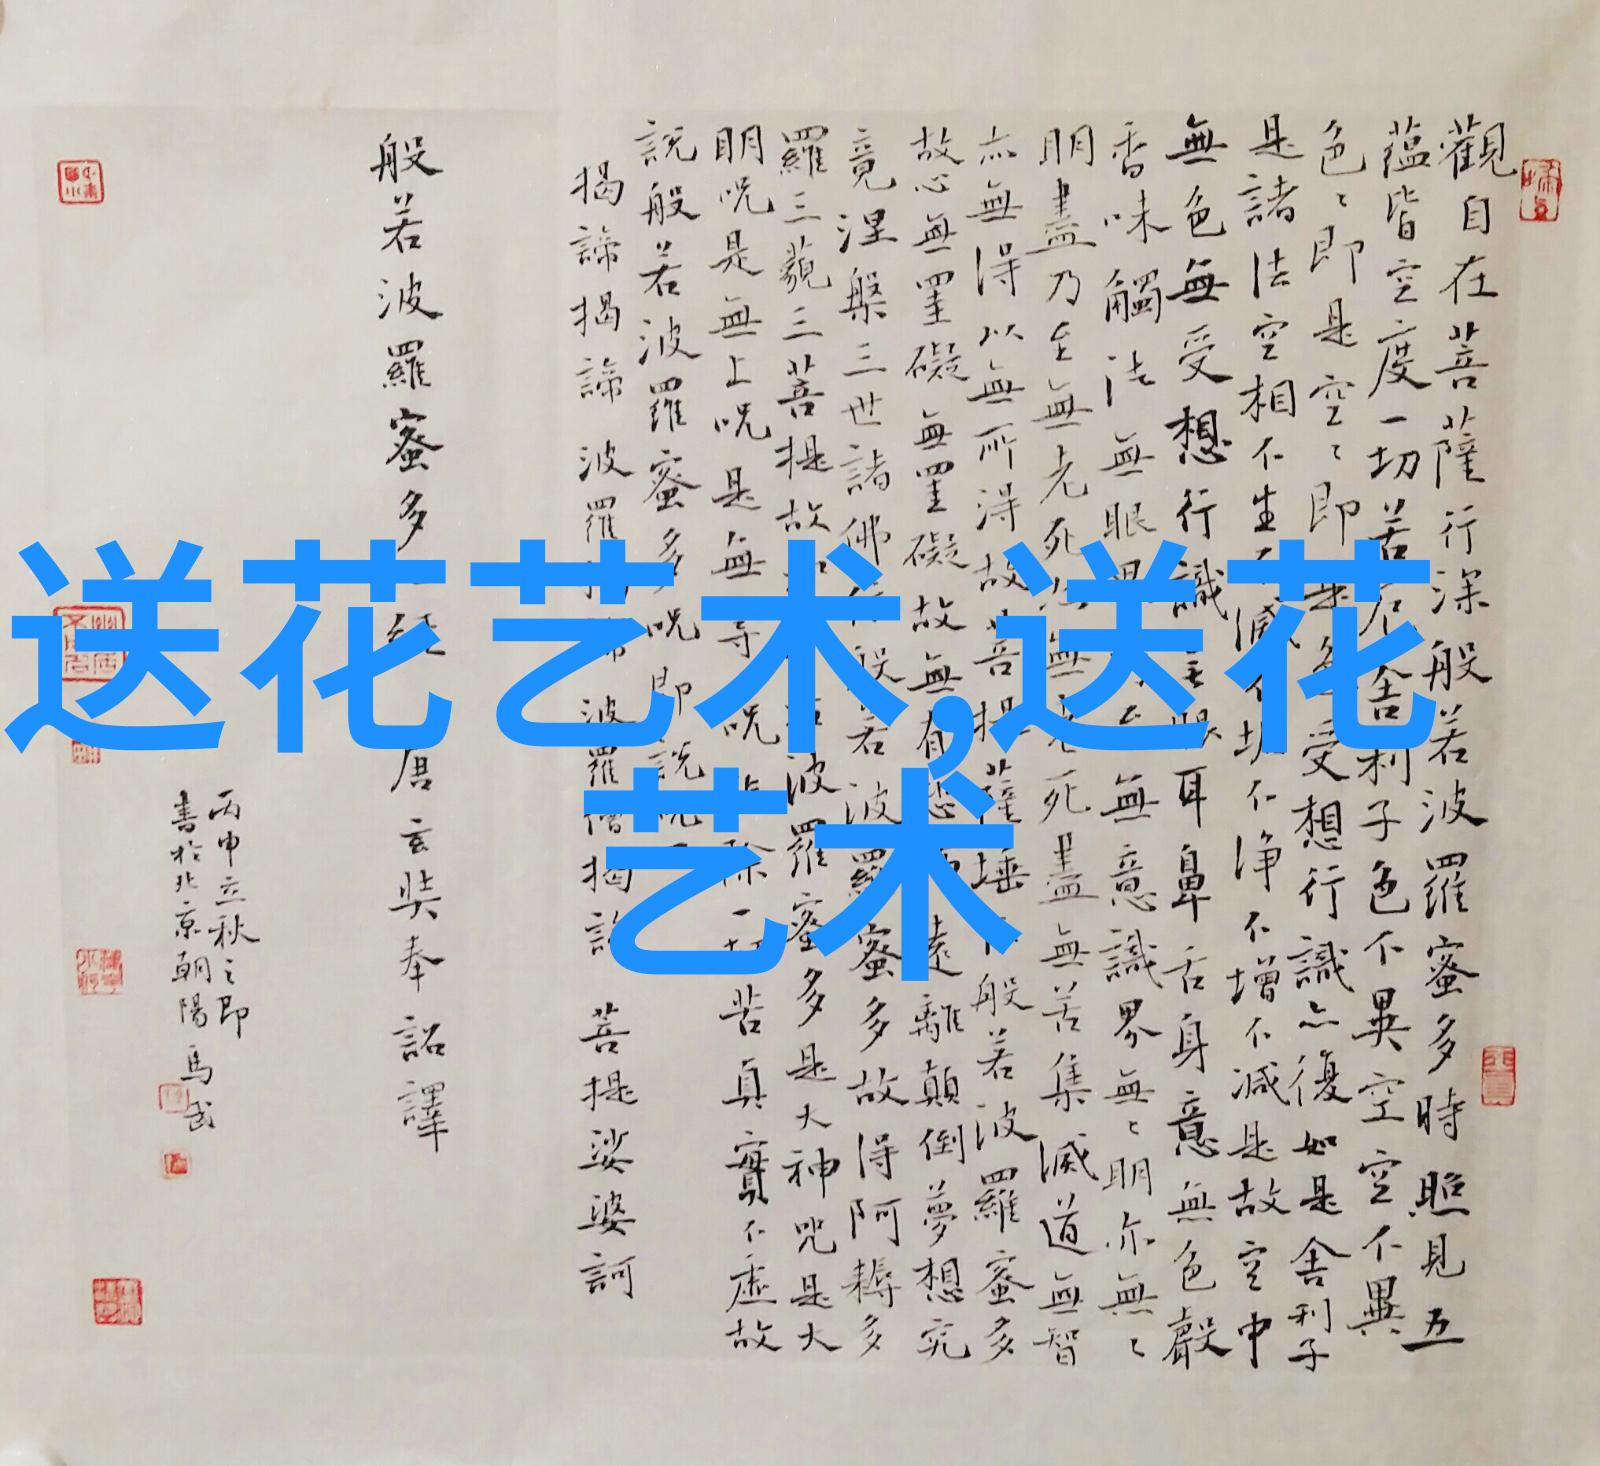 送花艺术,送花
艺术
觀自在菩薩行深般若波羅蜜多時照見五
蘊皆空度一切苦厄舍利子色不異空空不異
色〻即是空〻即是色受想行識亦復如是舍利子
是諸法空相不生不滅不垢不净不增不減是故空中
無色無受想行識無眼耳鼻舌身意無色聲
香味觸法無眼界至無意識界無〻明亦無〻
明盡乃至無老死亦無老死盡無苦集滅道無智
亦無得以無所得故菩提薩埵依般若波羅蜜多
故心無罣礙無罣礙故無有恐遠離顛倒夢想究
竟涅槃三世諸佛依般若波羅蜜多故得阿耨多
羅三藐三菩提故若波羅蜜多是大神咒是大
明呪是無上呪是無等呪能除一切苦真實不虛故
說般若波羅蜜多呪即說呪
揭諦揭諦波羅揭諦波羅僧揭諦菩提娑婆訶
般若波羅蜜多經唐玄奘奉詔譯
丙申立秋之即
書於北京朝陽馬武